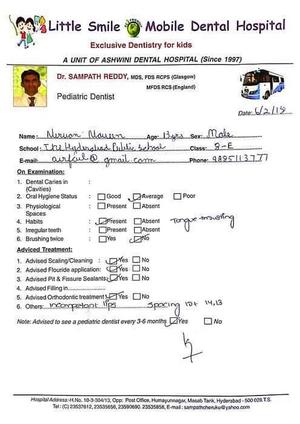 Little Smile Mobile Dental Hospital
Exclusive Dentistry for kids
A UNIT OF ASHWINI DENTAL HOSPITAL (Since 1997)
Dr. SAMPATH REDDY, MDS, FDS RCPS (Glasgow)
MFDS RCS (England)
Pediatric Dentist
Date: 6/2/19
Name: Age: 13yrs Sex: Male
School: The Hyderabad Public School Class: 8-E
E-mail: @gmail.com Phone:
On Examination:
1. Dental Caries in (Cavities) :
2. Oral Hygiene Status : Good Average Poor
3. Physiological Spaces : Present Absent
4. Habits : Present Absent Tongue thrusting
5. Irregular teeth : Present Absent
6. Brushing twice : Yes No
Adviced Treatment:
1. Advised Scaling/Cleaning : Yes No
2. Advised Flouride application: Yes No
3. Advised Pit & Fissure Sealants Yes No
4. Advised Filling in
5. Advised Orthodontic treatment Yes No
6. Others: incompetent lips spacing 14,13
Note: Advised to see a pediatric dentist every 3-6 months Yes No
Hospital Address: H.No. 10-3-304/13, Opp: Post Office, Humayunnagar, Masab Tank, Hyderabad - 500 028.T.S.
Tel: (C) 23537612, 23535656, 23590690. 23535868. E-mail: sampathcheruku@yahoo.com